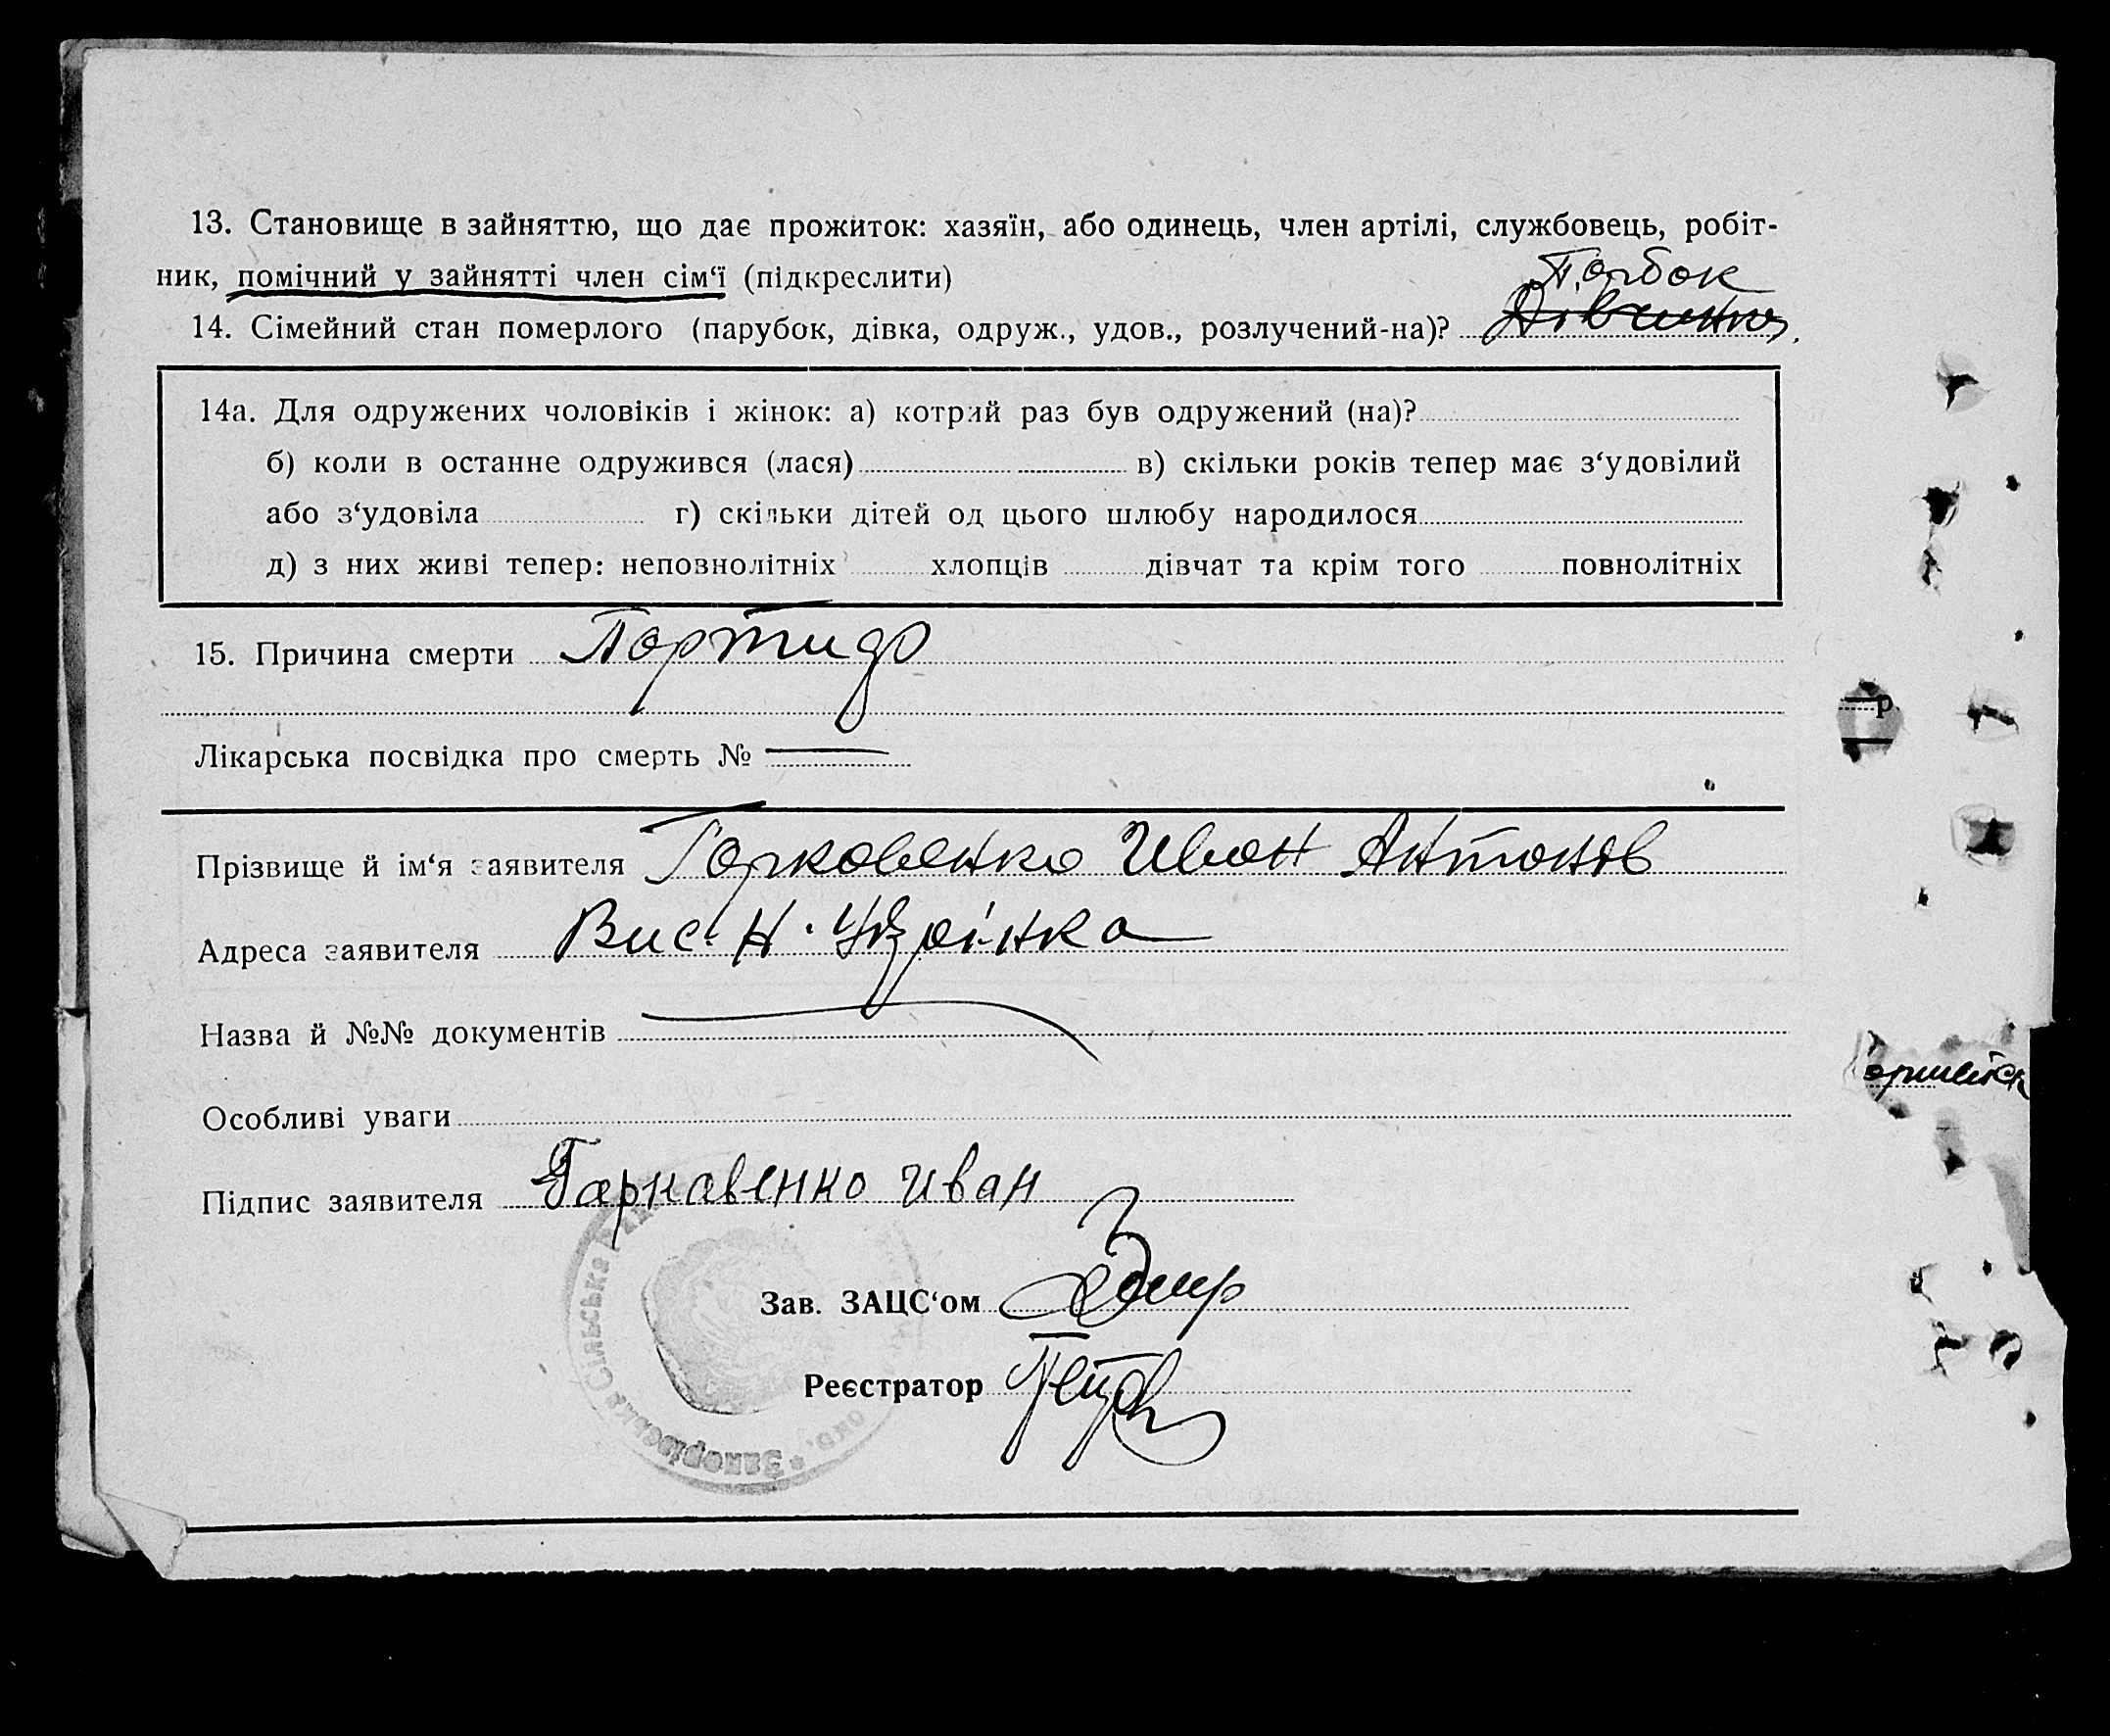 13. Становище в зайняттю, що дає прожиток: хазяїн, або одинець, член артілі, службовець, робіт-
ник, помічний у зайнятті член сім‘ї (підкреслити)
14. Сімейний стан померлого (парубок, дівка, одруж., удов., розлучений-на)?
14а. Для одружених чоловіків і жінок: а) котрий раз був одружений (на)?
б) коли в останне одружився (лася) в) скільки років тепер має з‘удовілий
або з‘удовіла г) скільки дітей од цього шлюбу народилося
д) з них живі тепер: неповнолітніх хлопців дівчат та крім того повнолітніх
15. Причина смерти
Лікарська посвідка про смерть №
Прізвище й ім‘я заявителя Горковенко Иван Антонов
Адреса заявителя Вис. Н.
Назва й №№ документів
Особливі уваги
Підпис заявителя Гаркавенко Иван
Зав. ЗАЦС‘ом
Реєстратор
Сільська